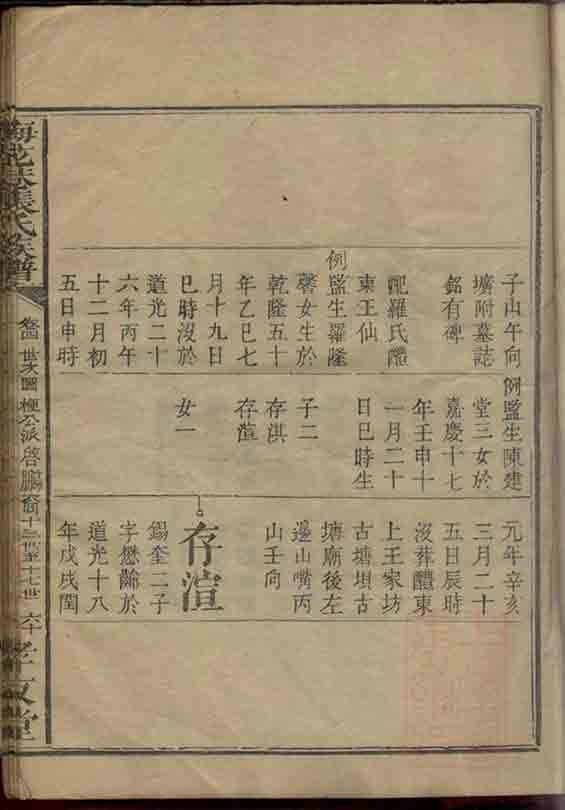 子山午向
壙附墓誌
銘有碑
配羅氏醴
東王仙
例監生羅隆
馨女生於
乾隆五十
年乙巳七
月十九日
巳時沒於
道光二十
六年丙午
十二月初
五日申時
例監生陳建
堂三女於
嘉慶十七
年壬申十
一月二十
日巳時生
子二
存淇
存渲
女一
元年辛亥
三月二十
五日辰時
沒葬醴東
上王家坊
古塘垻古
塘廟後左
邊山嘴丙
山壬向
存渲
錫奎二子
字懋齡於
道光十八
年戊戌閏
張氏族譜
世次圖 極公派啓鵬裔十三世至十七世 六十
孝友堂